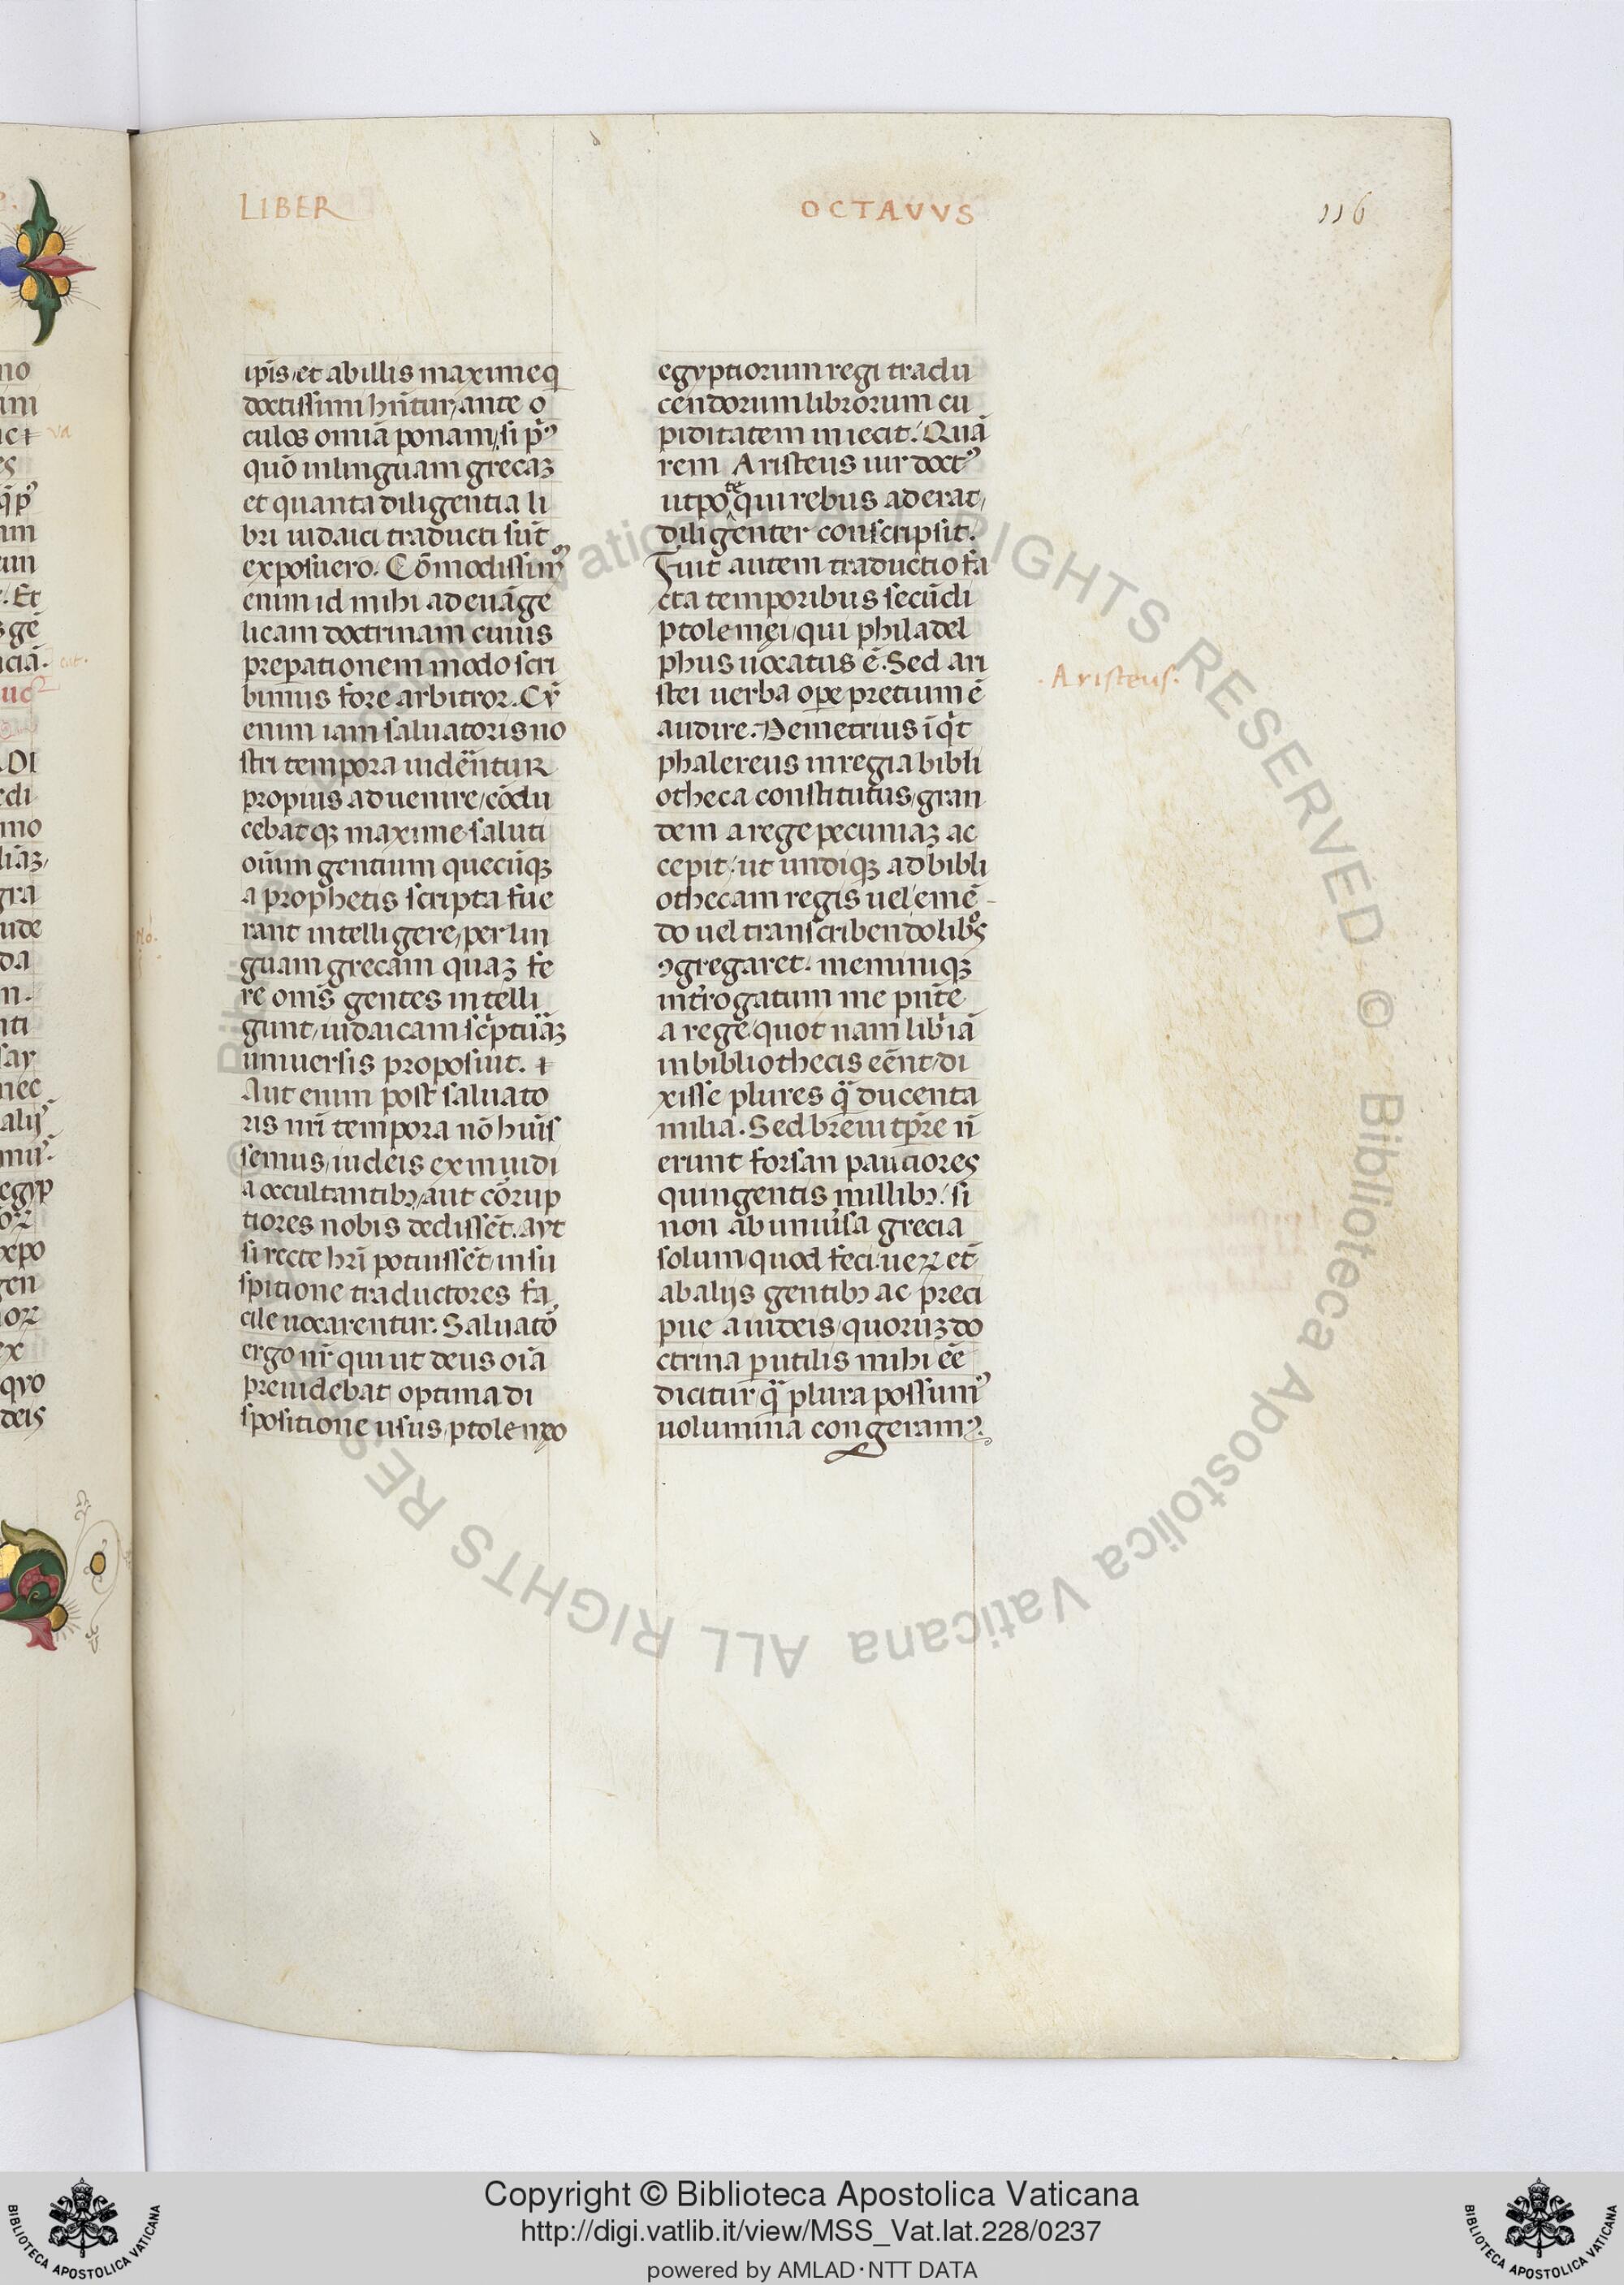 LIBER
OCTAVVS
116
ip̄is et ab illis maxime q
doctissimi hn̄tur, ante o
culos om̄ia ponam, si p̄ꝰ
quō in linguam grecaꝫ
et quanta diligentia li
bri iudaici traducti sūt
exposuero. Cōmodissimꝰ
enim id mihi ad euāge
licam doctrinam cuius
preparationem modo scri
bimus fore arbitror. Cv̄
enim iam saluatoris no
stri tempora uiderentur
propius aduenire, cōdu
cebatqꝫ maxime saluti
oīum gentium quecūqꝫ
a prophetis scripta fue
rant intelligere, per lin
guam grecam quaꝫ fe
re om̄s gentes intelli
gunt, iudaicam sc̄pturaꝫ
uniuersis proposuit.
Aut enim post saluato
ris nr̄i tempora nō huis
semus, iudeis ex inuidi
a occultantibꝫ, aut cōrup
tiores nobis dedissēt. avt
si recte hr̄i potuissēt, in su
spitione traductores fa
cile uocarentur. Saluatō
ergo nr̄ qui ut deus oīa
preuidebat optima di
spositione usus, ptolemęo
egyptiorum regi tradu
cendorum librorum cu
piditatem iniecit. Quā
rem Aristeus uir doctꝰ
utpote qui rebus aderat,
diligenter conscripsit.
Fuit autem traductio fa
cta temporibus secūdi
ptolemęi, qui philadel
phus uocatus ē. Sed ari
stei uerba ope pretium ē
audire. Demetrius īqͥt
phalereus in regia bibli
otheca constitutus, gran
dem a rege pecuniaꝫ ac
cepit, ut undiqꝫ ad bibli
othecam regis uel emē
do uel transcribendo libͦs
ꝯgregaret. meminiqꝫ
int̄rogatum me pn̄te
a rege, quot nam lib iā
in bibliothecis eēnt, di
xisse plures qᷓ ducenta
milia. Sed breui tp̄re īn
erunt forsan pauciores
quingentis millibꝫ. si
non ab uniuersa grecia
solum, quod feci, ueꝝ et
ab alijs gentibꝫ ac preci
pue a iudeis, quoruꝫ do
ctrina ꝑutilis mihi eē
dicitur, qᷓ plura possumꝰ
uolumina congeram.
. Aristeus.
No.
no
ES
. Et
nti
nec
egyp
gen
ex
qvo
deis
© Biblioteca Apostolica Vaticana ALL RIGHTS RESERVED © Biblioteca Apostolica Vaticana ALL RIGHTS RESERVED
BIBLIOTECA APOSTOLICA VATICANA
Copyright © Biblioteca Apostolica Vaticana
http://digi.vatlib.it/view/MSS_Vat.lat.228/0237
powered by AMLAD·NTT DATA
BIBLIOTECA APOSTOLICA VATICANA